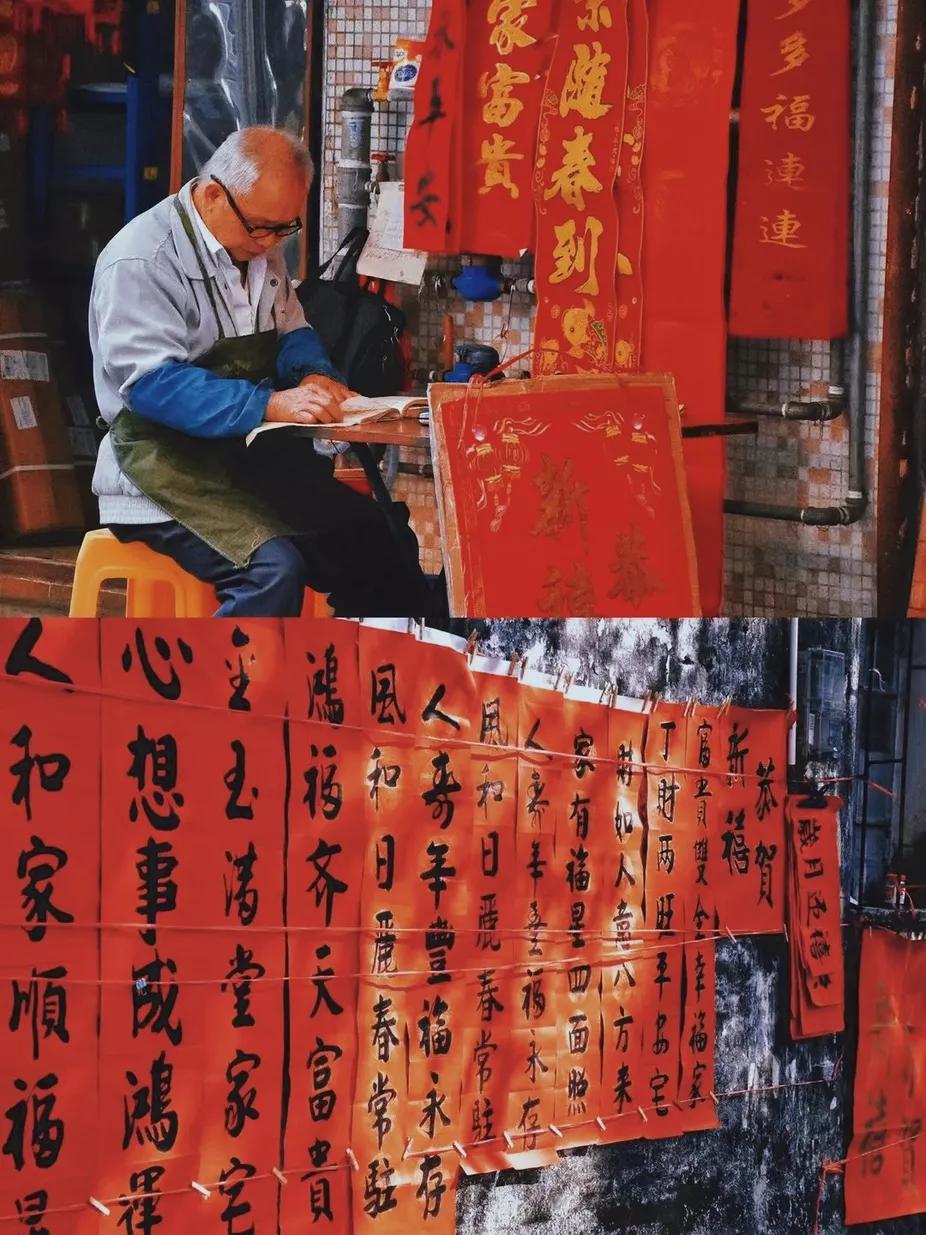 多多福連連
隨春到
家富貴
年安
恭
新禧
恭賀
新禧
富貴雙全幸福家
丁財两旺平安宅
財如人意八方来
家有福星四面照
人寿年豐福永存
風和日麗春常駐
人寿年豐福永存
風和日麗春常駐
鴻福齐天富貴
金玉满堂家宅
心想事成鴻運
人和家順福星